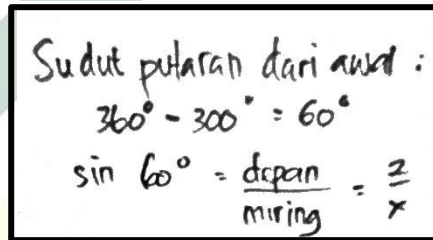 Sudut putaran dari awal :
360° - 300° = 60°
sin 60° = depan/miring = 2/x